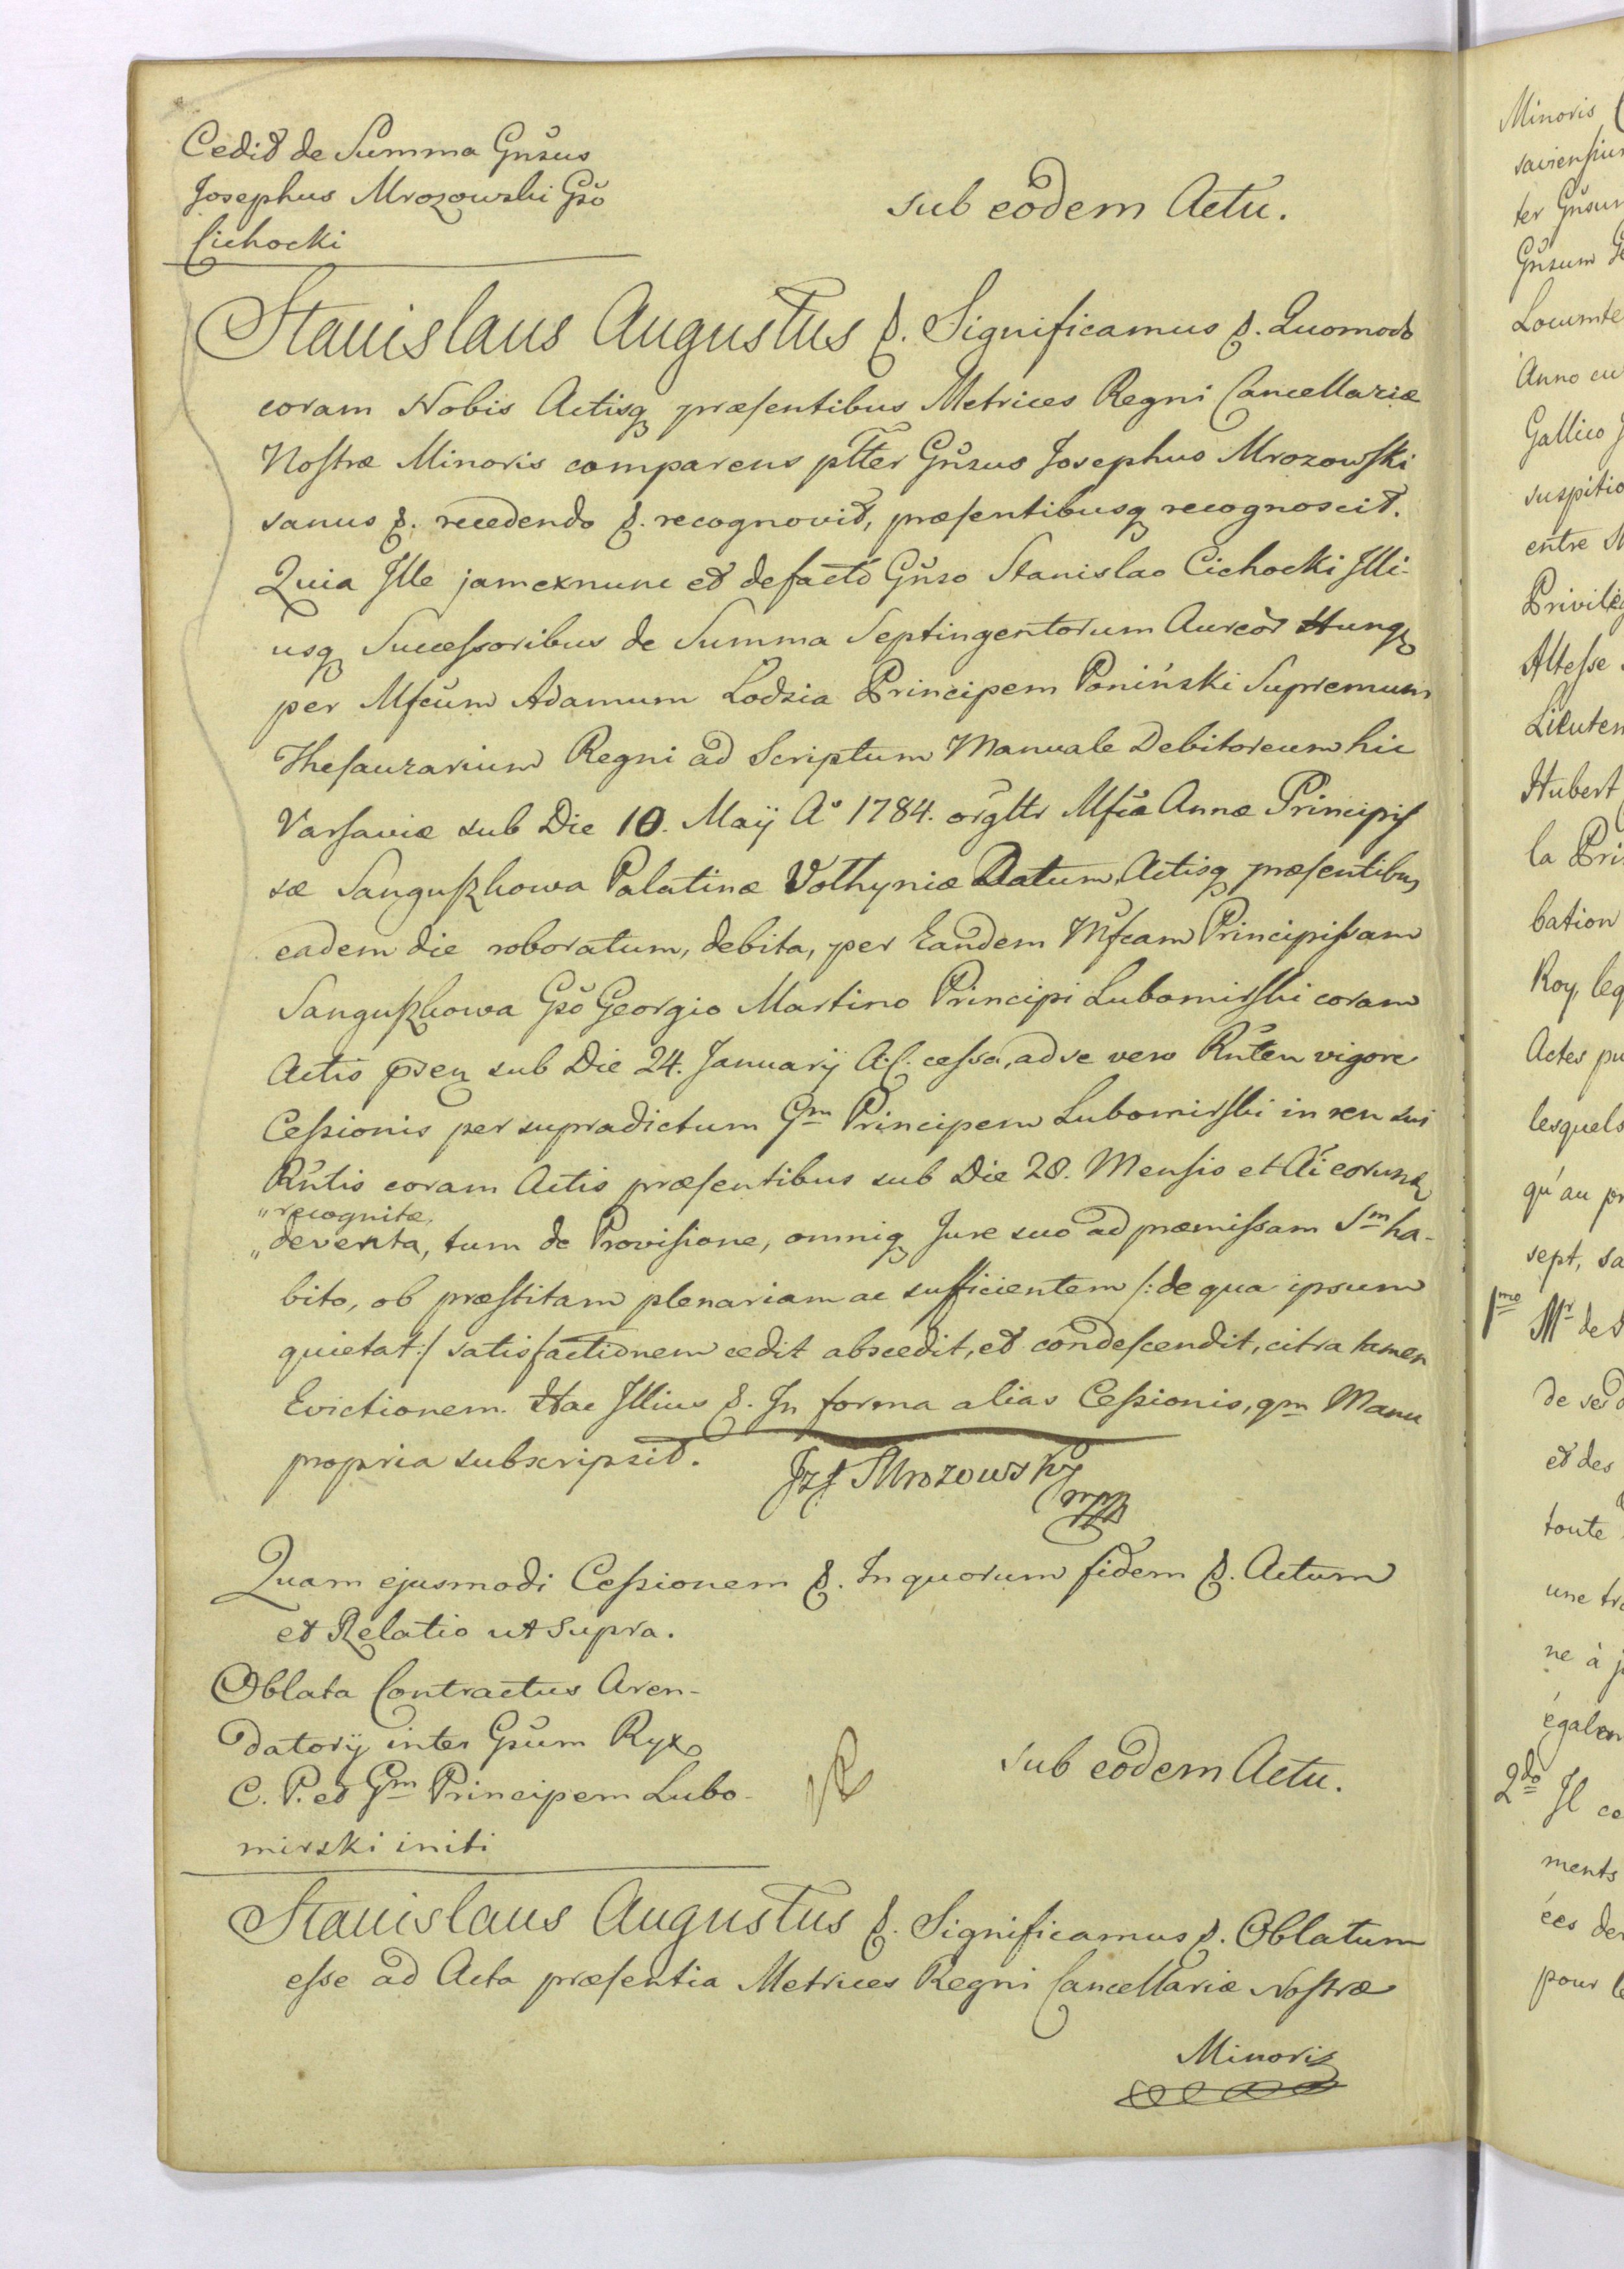 Cedit de Summa Gnsus
Josephus Mrozowski Gso
Cichocki
sub eodem Actu.
Stanislaus Augustus &. Significamus &. Quomodo
coram Nobis Actisq præsentibus Metrices Regni Cancellariæ
Nostræ Minoris comparens pltter Gnsus Josephus Mrozowski
sanus &. recedendo &. recognovit, præsentibusq recognoscit.
Quia Ille jamexnunc et defacto Gnso Stanislao Cichocki Illi-
usq Successoribus de Summa Septingentorum Aureor Hung
per Mfcum Adamum Lodzia Principem Poniński Supremum
Thesaurarium Regni ad Scriptum Manuale Debitoreum hic
Varsaviæ sub Die 10. Maij Ao 1784. orgltr Mfca Annæ Principis
sæ Sanguszkowa Palatinæ Volhyniæ Datum, Actisq præsentibus
eadem die roboratum, debita, per Eandem Mfcam Principissam
Sanguszkowa Gso Georgio Martino Principi Lubomirski coram
Actis psen sub Die 24. Januarij A.C. cessa, ad se vero Rnten vigore
Cessionis per supradictum Gm Principem Lubomirski in rem sui
Rntis coram Actis præsentibus sub Die 28. Mensis et Ai eorund
"recognitæ,
"deventa, tum de Provisione, omniq Jure suo ad præmissam Sm ha-
bito, ob præstitam plenariam ac sufficientem /: de qua ipsum
quietat :/ satisfactionem cedit abscedit, et condescendit, citra tamen
Evictionem. Hac Illius &. In forma alias Cessionis, qm Manu
propria subscripsit. Jzf Mrozowski mpp
Quam ejusmodi Cessionem &. In quorum fidem &. Actum
et Relatio ut Supra.
Oblata Contractus Aren-
datorij inter Gsum Ryx
C. P. et Gm Principem Lubo-
mirski initi
sub eodem Actu.
Stanislaus Augustus &. Significamus &. Oblatum
esse ad Acta præsentia Metrices Regni Cancellariæ Nostræ
Minoris
Minoris
saviensiu
ter Gnsum
Gnsum
Locumte
Anno cu
Gallico
suspitio
entre
Privilég
Altesse
Lieuten
Hubert
la Pri
bation
Roy, leq
Actes pu
lesquels
qu'au pr
sept, sa
1mo Mr de
de ses
et des
toute
une tra
ne à j
égalem
2do Il co
ments
ées de
pour le